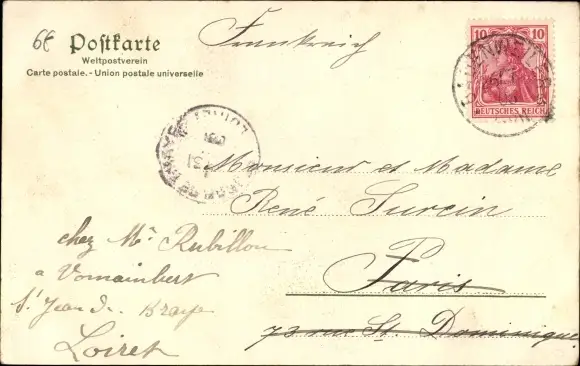 6E
Postkarte
Weltpostverein
Carte postale. - Union postale universelle
Frankreich
10 10
DEUTSCHES REICH
LOIRET
Monsieur et Madame
René Surcin
Paris
73 rue St. Dominique
chez Mr Rubillon
a Vomaimbert
St Jean de Braye
Loiret